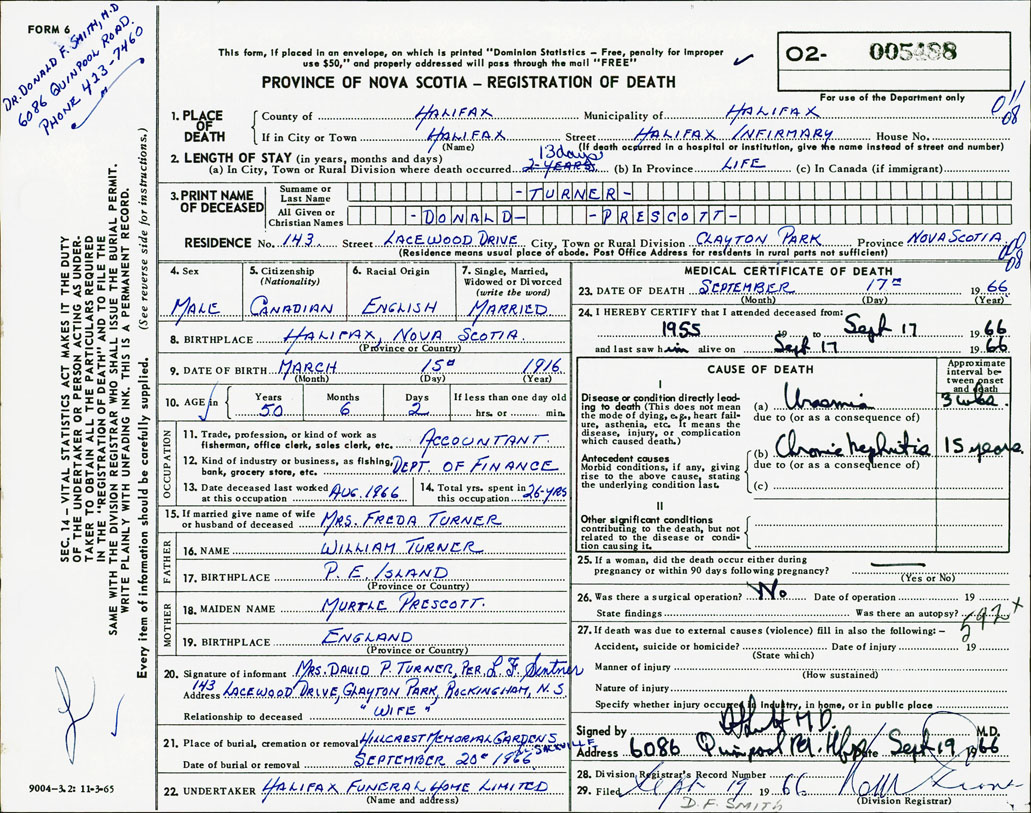 FORM 6
DR. DONALD F. SMITH, M.D
6086 QUINPOOL ROAD.
PHONE 423-7460
This form, if placed in an envelope, on which is printed "Dominion Statistics – Free, penalty for improper
use $50," and properly addressed will pass through the mail "FREE"
PROVINCE OF NOVA SCOTIA – REGISTRATION OF DEATH
O2- 005488
For use of the Department only
011
08
1. PLACE OF DEATH County of HALIFAX Municipality of HALIFAX
If in City or Town HALIFAX Street HALIFAX INFIRMARY House No.
(Name) (If death occurred in a hospital or institution, give the name instead of street and number)
2. LENGTH OF STAY (in years, months and days) 13 days
(a) In City, Town or Rural Division where death occurred 2-YEARS (b) In Province LIFE (c) In Canada (if immigrant)
3. PRINT NAME OF DECEASED Surname or Last Name -TURNER-
All Given or Christian Names -DONALD- -PRESCOTT-
RESIDENCE No. 143 Street LACEWOOD DRIVE City, Town or Rural Division CLAYTON PARK Province NOVA SCOTIA.
(Residence means usual place of abode. Post Office Address for residents in rural parts not sufficient)
08
SEC. 14 – VITAL STATISTICS ACT MAKES IT THE DUTY
OF THE UNDERTAKER OR PERSON ACTING AS UNDER-
TAKER TO OBTAIN ALL THE PARTICULARS REQUIRED
IN THE "REGISTRATION OF DEATH" AND TO FILE THE
SAME WITH THE DIVISION REGISTRAR WHO SHALL ISSUE THE BURIAL PERMIT.
WRITE PLAINLY WITH UNFADING INK. THIS IS A PERMANENT RECORD.
Every item of information should be carefully supplied. (See reverse side for instructions.)
4. Sex MALE
5. Citizenship (Nationality) CANADIAN
6. Racial Origin ENGLISH
7. Single, Married, Widowed or Divorced (write the word) MARRIED
8. BIRTHPLACE HALIFAX, NOVA SCOTIA.
(Province or Country)
9. DATE OF BIRTH MARCH 15th 1916
(Month) (Day) (Year)
10. AGE in Years 50 Months 6 Days 2 If less than one day old hrs. or min.
OCCUPATION
11. Trade, profession, or kind of work as fisherman, office clerk, sales clerk, etc. ACCOUNTANT.
12. Kind of industry or business, as fishing, bank, grocery store, etc. DEPT. OF FINANCE
13. Date deceased last worked at this occupation AUG. 1966
14. Total yrs. spent in this occupation 26-YRS
15. If married give name of wife or husband of deceased MRS. FREDA TURNER
FATHER
16. NAME WILLIAM TURNER
17. BIRTHPLACE P.E. ISLAND
(Province or Country)
MOTHER
18. MAIDEN NAME MURTLE PRESCOTT.
19. BIRTHPLACE ENGLAND
(Province or Country)
20. Signature of informant MRS. DAVID P. TURNER, PER. L. F. Sentner
Address 143 LACEWOOD DRIVE, CLAYTON PARK, ROCKINGHAM, N.S.
Relationship to deceased "WIFE"
21. Place of burial, cremation or removal HILLCREST MEMORIAL GARDENS SACKVILLE
Date of burial or removal SEPTEMBER 20th 1966
22. UNDERTAKER HALIFAX FUNERAL HOME LIMITED
(Name and address)
9004–3.2: 11-3-65
MEDICAL CERTIFICATE OF DEATH
23. DATE OF DEATH SEPTEMBER 17th 1966
(Month) (Day) (Year)
24. I HEREBY CERTIFY that I attended deceased from:
1955 19 to Sept 17 1966
and last saw him alive on Sept 17 1966
CAUSE OF DEATH
Approximate interval between onset and death
I
Disease or condition directly leading to death (This does not mean the mode of dying, e.g., heart failure, asthenia, etc. It means the disease, injury, or complication which caused death.)
(a) Uraemia 3 wks.
due to (or as a consequence of)
Antecedent causes
Morbid conditions, if any, giving rise to the above cause, stating the underlying condition last.
(b) Chronic Nephritis 15 years
due to (or as a consequence of)
(c)
II
Other significant conditions
contributing to the death, but not related to the disease or condition causing it.
25. If a woman, did the death occur either during
pregnancy or within 90 days following pregnancy?
(Yes or No)
26. Was there a surgical operation? No Date of operation 19
State findings Was there an autopsy?
592x
27. If death was due to external causes (violence) fill in also the following: –
Accident, suicide or homicide? Date of injury 19
(State which)
Manner of injury
(How sustained)
Nature of injury
Specify whether injury occurred in industry, in home, or in public place
Signed by M.D. M.D.
Address 6086 Quinpool Rd. Hfx Date Sept 19 1966
28. Division Registrar's Record Number
29. Filed Sept 19 1966
(Division Registrar)
D.F. SMITH